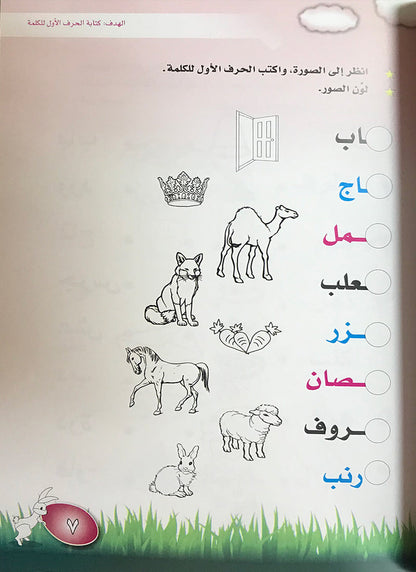 الهدف: كتابة الحرف الأول للكلمة
انظر إلى الصورة، واكتب الحرف الأول للكلمة.
لوّن الصور.
ـاب
ـاج
ـمل
ـعلب
ـزر
ـصان
ـروف
رنب
٧